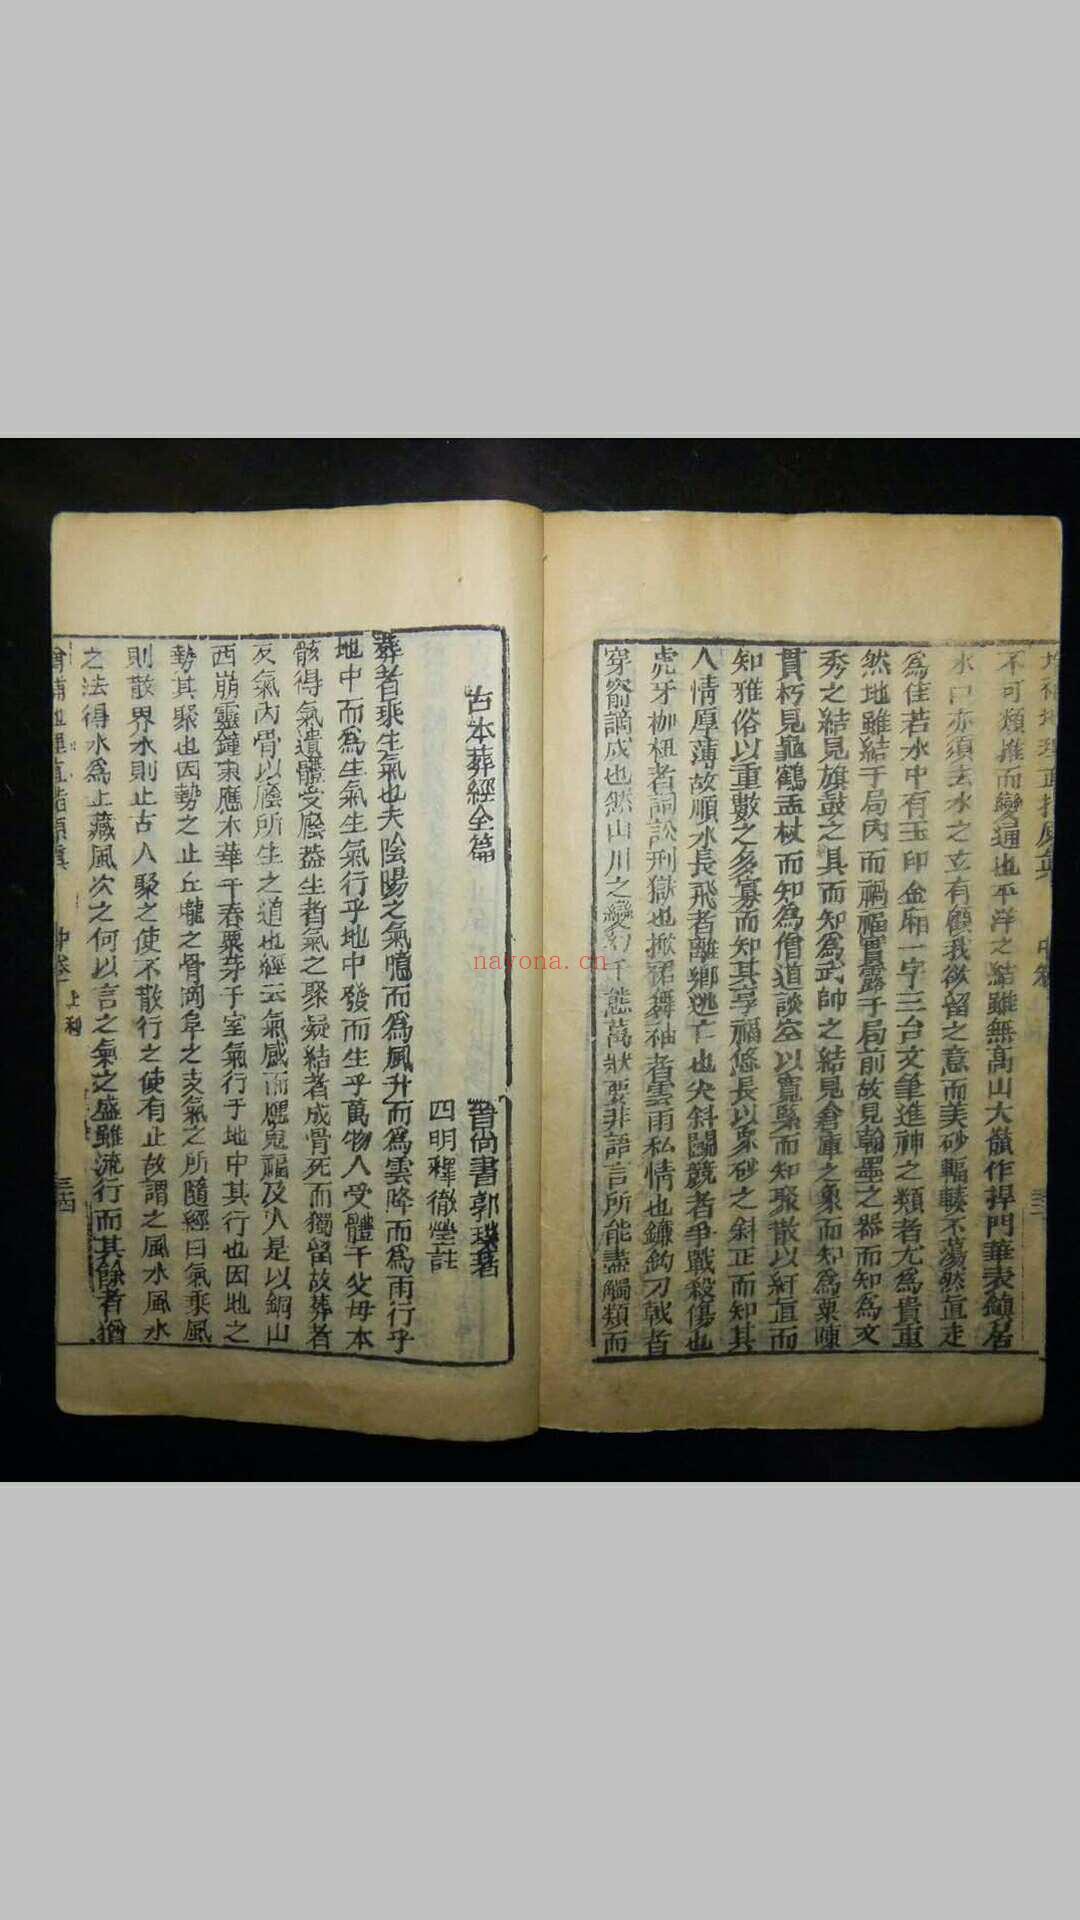 不可類推而變通也平洋之結雖無高山大嶺作捍門華表鎮居
水口亦須去水之立有顧我欲留之意而美砂輻輳不蕩然直走
為佳若水中有玉印金廂一字三台文筆進神之類者尤為貴重
然地雖結于局內而禍福實露于局前故見翰墨之器而知為文
秀之結見旗鼓之具而知為武帥之結見倉庫之象而知為粟陳
貫朽見龜鶴盂杖而知為僧道談空以寬緊而知聚散以紆直而
知雅俗以重數之多寡而知其享福悠長以系砂之斜正而知其
人情厚薄故順水長飛者離鄉逃亡也尖斜鬪競者爭戰殺傷也
虎牙枷杻者詞訟刑獄也掀裙舞袖者雲雨私情也鐮鈎刀戟者
穿窬謫戍也然山川之變幻千態萬狀要非語言所能盡觸類而
古本葬經全篇
晉尚書郭璞著
四明釋徹瑩註
葬者乘生氣也夫陰陽之氣噫而為風升而為雲降而為雨行乎
地中而為生氣生氣行乎地中發而生乎萬物人受體于父母本
骸得氣遺體受廕葢生者氣之聚凝結者成骨死而獨留故葬者
反氣內骨以廕所生之道也經云氣感而應鬼福及人是以銅山
西崩靈鐘東應木華于春粟芽于室氣行于地中其行也因地之
勢其聚也因勢之止丘壠之骨岡阜之支氣之所隨經曰氣乘風
則散界水則止古人聚之使不散行之使有止故謂之風水風水
之法得水為上藏風次之何以言之氣之盛雖流行而其餘者猶
中卷
上利
三四
nayona.cn